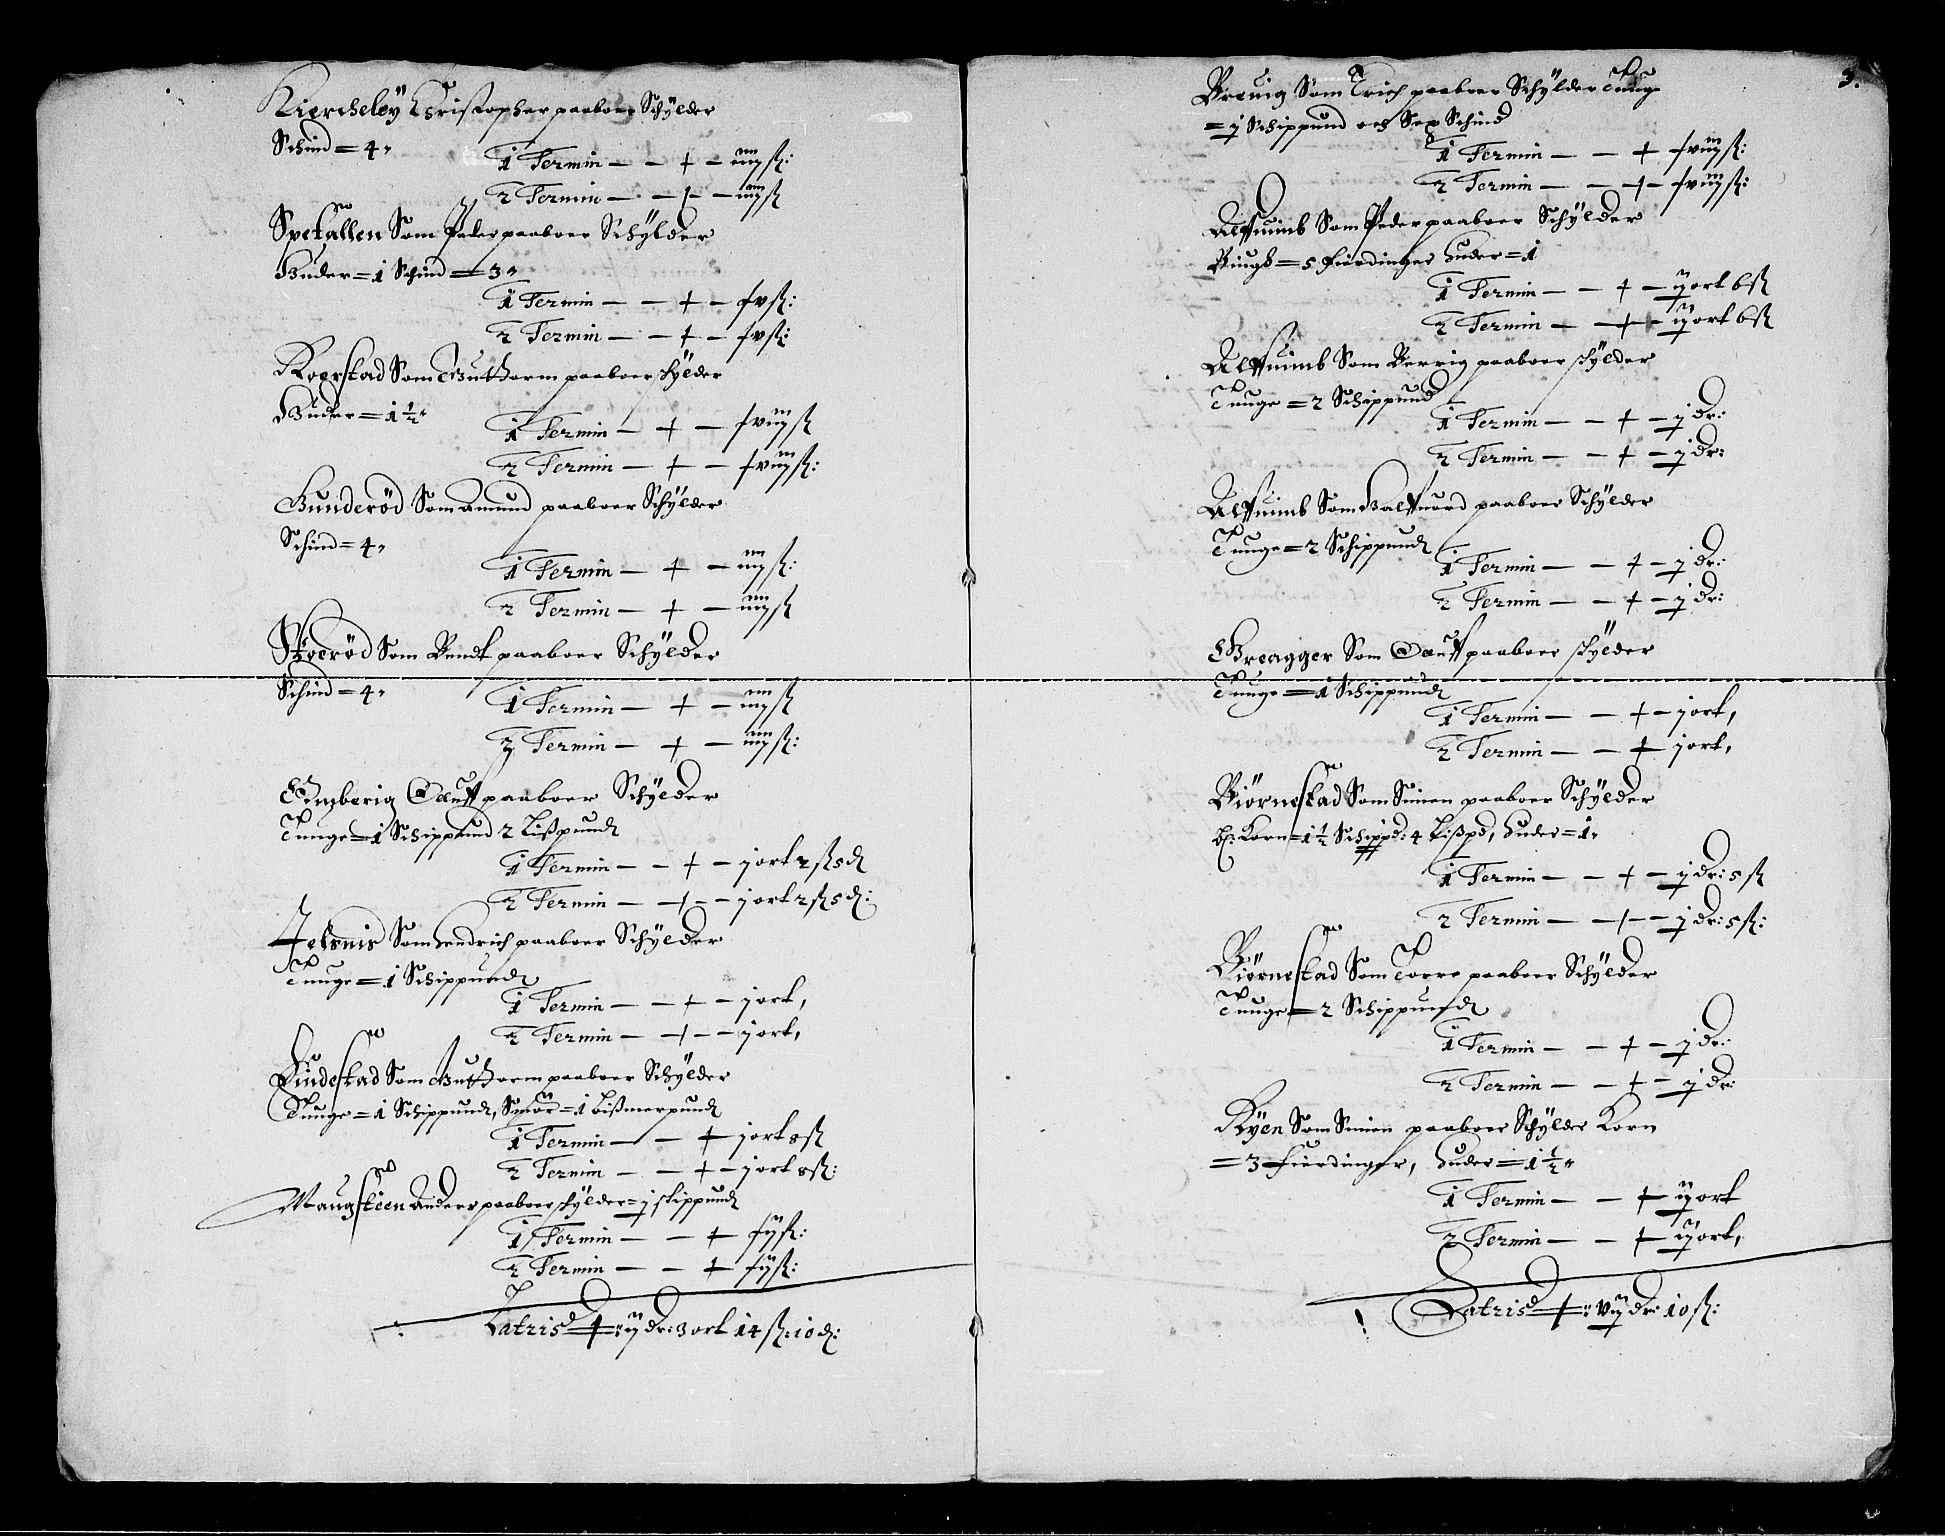 Kiercheløÿ Christopher paaboer Schÿlder
Schind = 4
1 Termin — — + — iiijß:
2 Termin — — + — iiijß
Spetallen Som Peder paaboer Schÿlder
Huder = 1 Schind = 3
1 Termin — — + — ß:
2 Termin — — + — ß:
Roerstad Som Gutthorm paaboer schÿlder
Huder = 1½
1 Termin — + — ß
2 Termin — + — ß:
Gunderød Som Amund paaboer Schÿlder
Schind = 4
1 Termin — + — iiijß:
2 Termin — + — iiijß
Som Bendt paaboer Schÿlder
Schind = 4
1 Termin — + — iiijß
2 Termin — + — iiijß:
Oeluff paaboer Schÿlder
Tunge = 1 Schippund 2 Lißpund
1 Termin — — + — j ort 2ß 5 d
2 Termin — — + — j ort 2ß 5 d:
Som Hendrich paaboer Schÿlder
Tunge = 1 Schippund
1 Termin — — + — j ort,
2 Termin — — + — j ort,
Som Gutthorm paaboer Schÿlder
Tunge = 1 Schippund, Smør = 1 Bißmerpund
1 Termin — — + — j ort 8ß
2 Termin — — + — j ort 8ß:
Haugstéen Anders paaboer schÿlder = j schippund
1 Termin — — + ß:
2 Termin — — + ß:
Latris + : ij dr: 3 ort 14ß: 10 d:
3.
Breuig Som Erich paaboer Schÿlder Tunge
= j Schippund och Sex Schind
1 Termin — — + ß:
2 Termin — — + — ß:
Alffuimb Som Peder paaboer Schÿlder
Biugh = 5 Fierdinger Huder = 1
1 Termin — — + — ij ort 6ß
2 Termin — — + — ij ort 6ß
Alffuimb Som paaboer schÿlder
Tunge = 2 Schippund
1 Termin — — + — j dr:
2 Termin — — + — j dr:
Alffuimb Som Halffuord paaboer Schÿlder
Tunge = 2 Schippund
1 Termin — — + — j dr:
2 Termin — — + — j dr:
Greagger Som Oeluff paaboer schÿlder
Tunge = 1 Schippund
1 Termin — — + — j ort,
2 Termin — — + j ort,
Biørnestad Som Simen paaboer Schÿlder
bl: Korn = 1½ Schippd: 4 Lißpd, Huder = 1
1 Termin — — + — j dr: 5ß
2 Termin — — + — j dr: 5ß:
Biørnestad Som Torre paaboer Schÿlder
Tunge = 2 Schippund
1 Termin — — + — j dr:
2 Termin — — + — j dr:
Rÿen Som Simen paaboer Schÿlder Korn
= 3 Fierdinger, Huder = 1½
1 Termin — — + ij ort
2 Termin — — + ij ort,
Latris + : vij dr: 10ß: